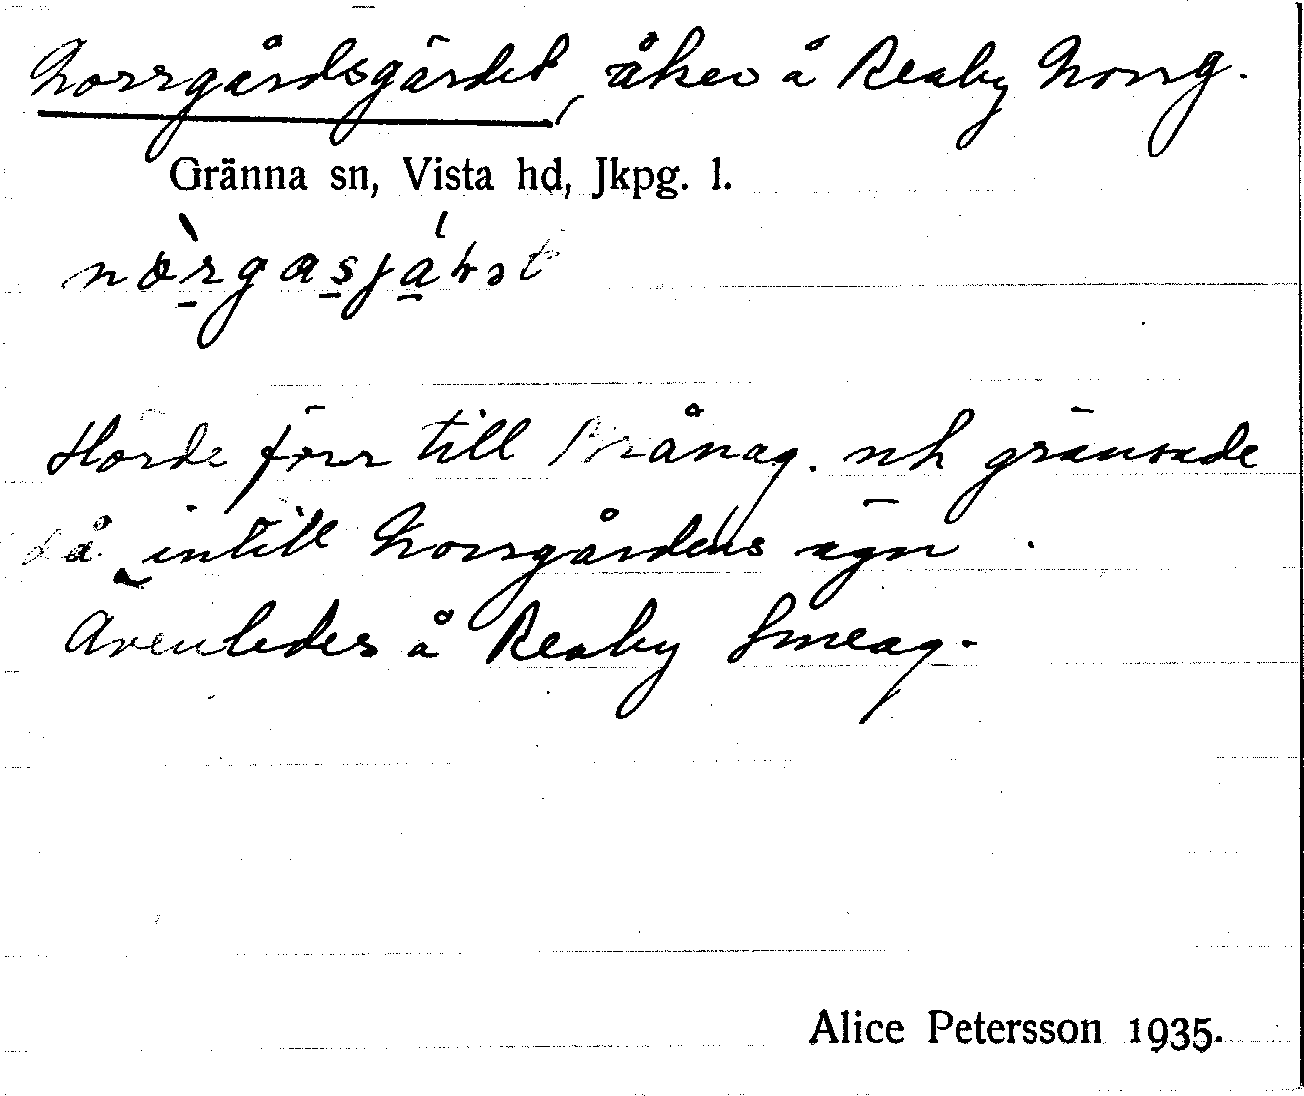 Norrgårdsgärdet, åker å Reaby Norrg.
Gränna sn, Vista hd, Jkpg. l.
Hörde förr till och gränsade
då intill Norrgårdens ägor.
Ävenledes å Reaby Smeag.
Alice Petersson 1935.